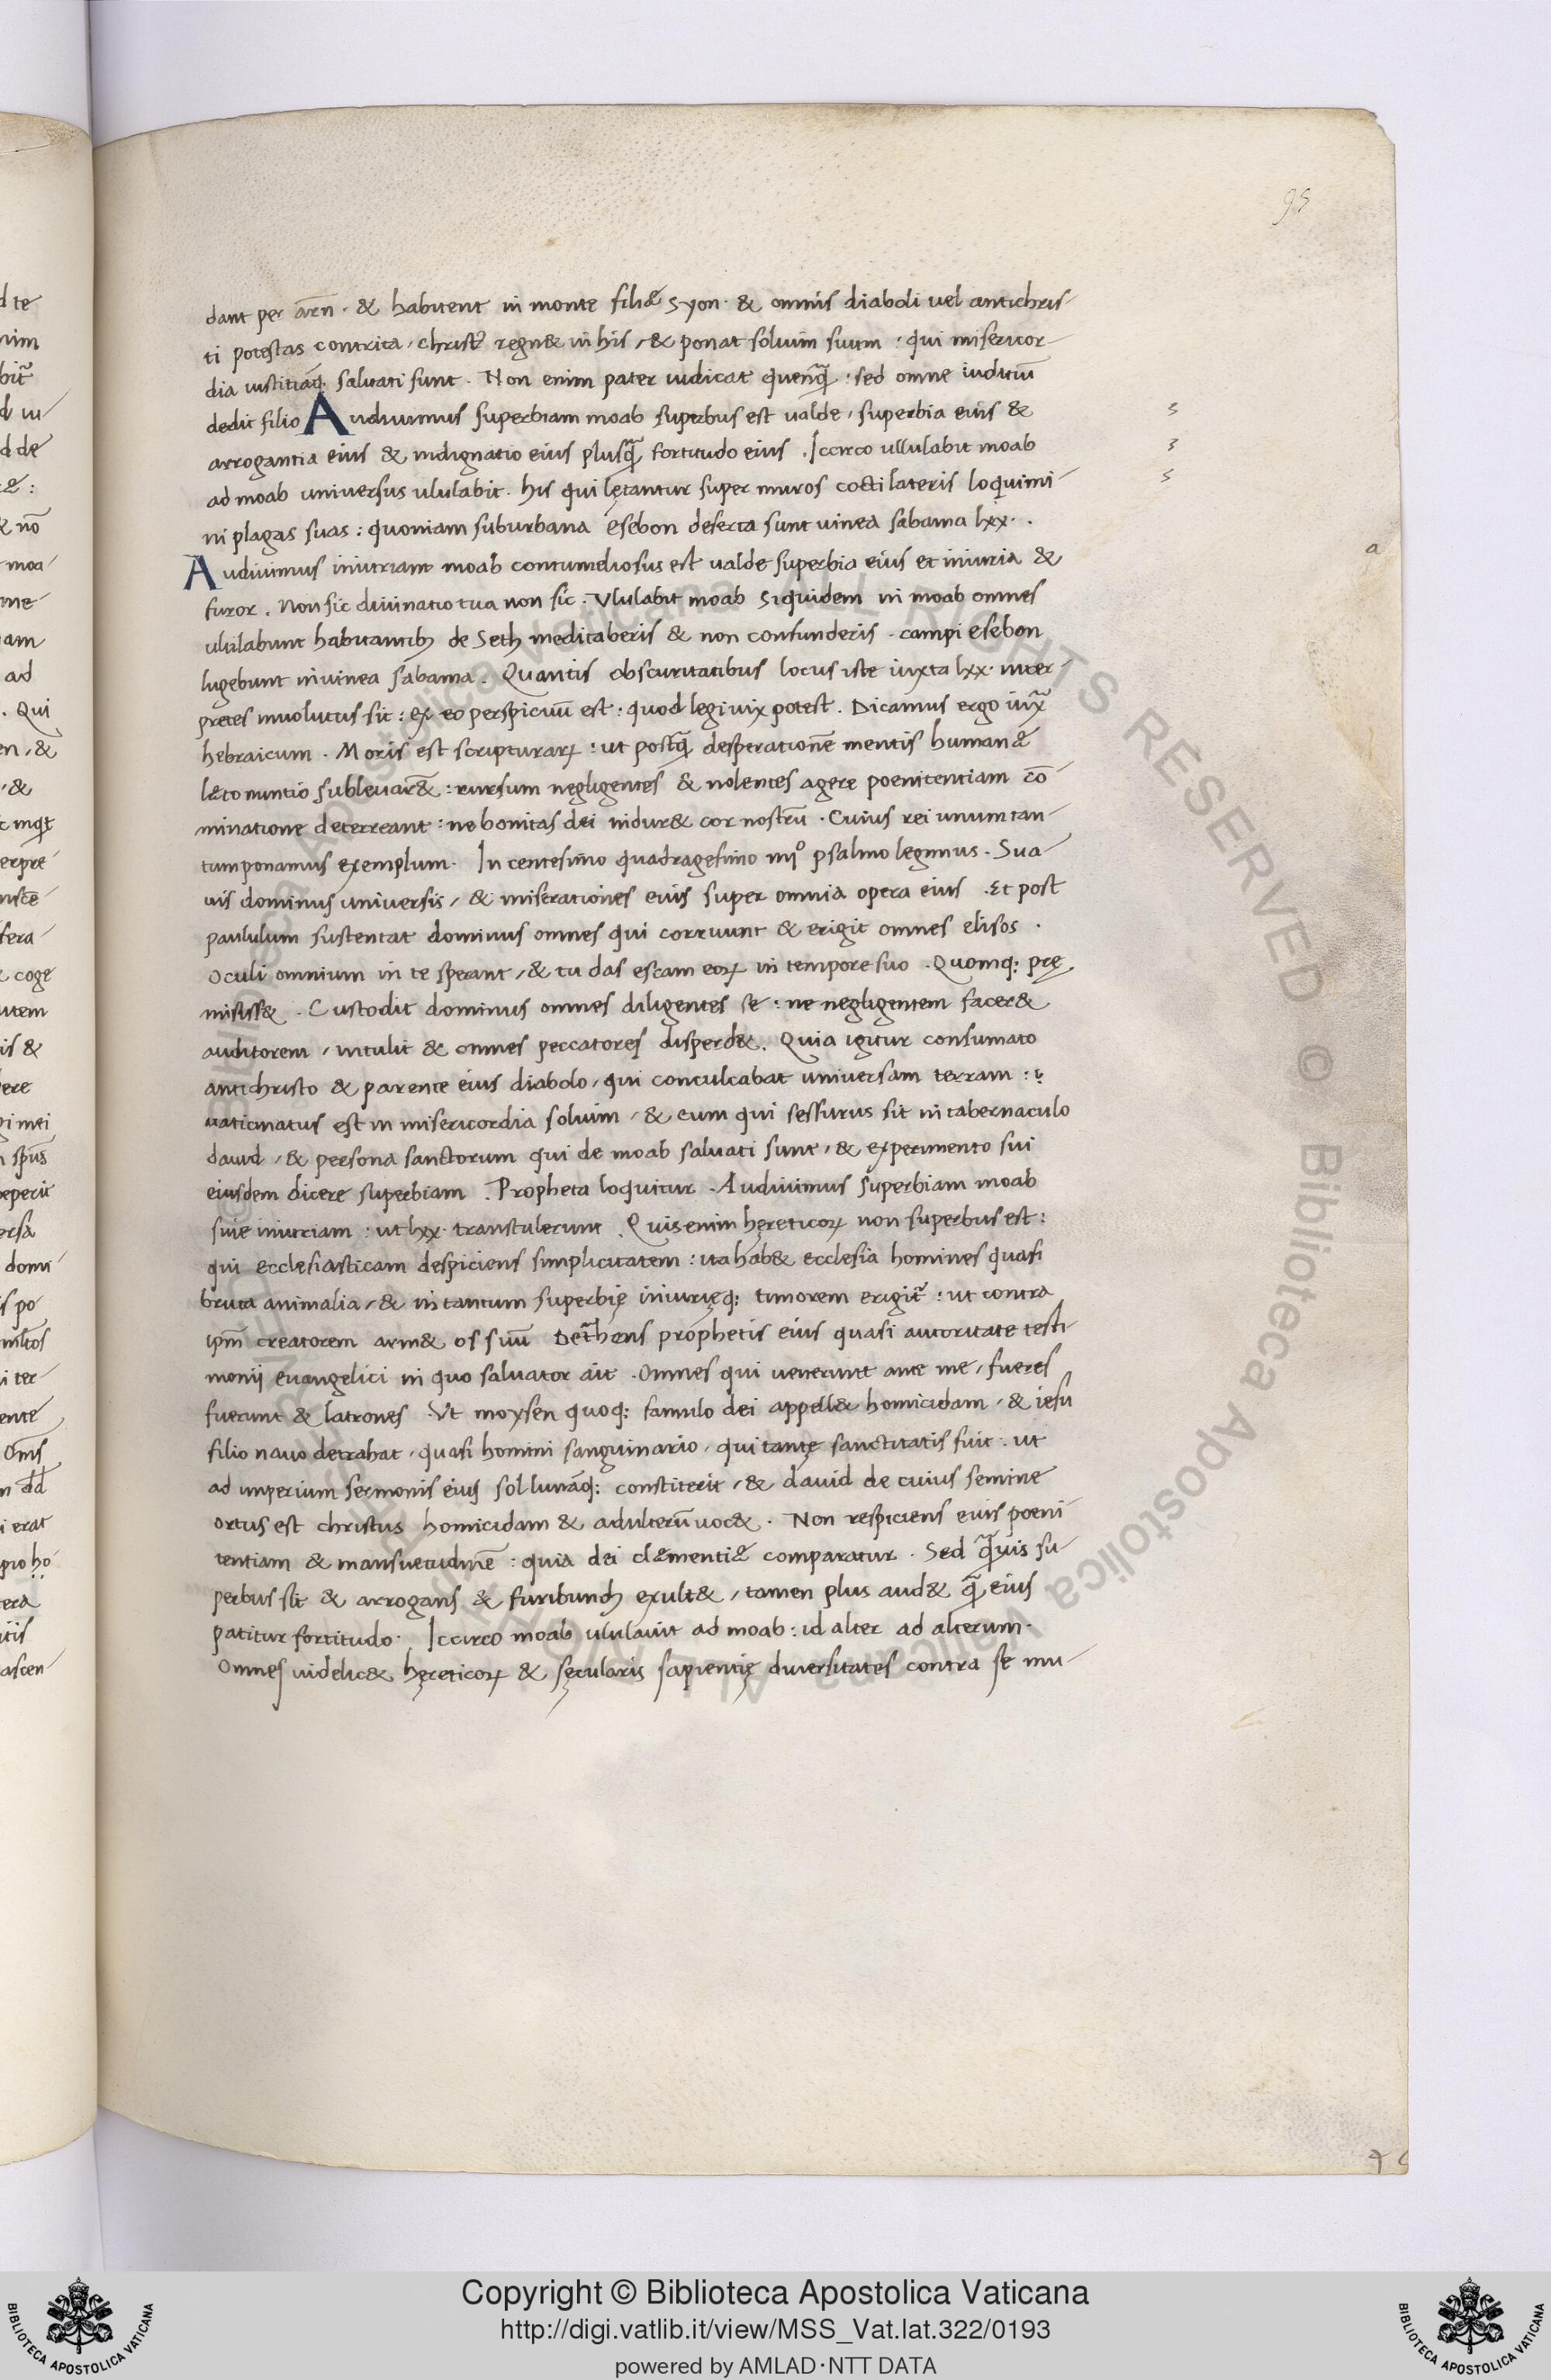 95
dant per arñ. & habitent in monte filiæ syon. & omnis diaboli uel antichris-
ti potestas contrita, christ9 regn& in his, & ponat solium suum : qui misericor-
dia iustitiaq̃. saluati sunt. Non enim pater iudicat quenq̃ : sed omne iuditiũ
dedit filio Audiuimus superbiam moab superbus est ualde, superbia eius &
arrogantia eius & indignatio eius plusq̃ fortitudo eius. Iccirco ullulabit moab
ad moab universus ululabit. his qui lętantur super muros cocti lateris loquimi-
ni plagas suas : quoniam suburbana esebon deserta sunt uinea sabama lxx.
Audiuimus iniuriam moab contumeliosus est ualde superbia eius et iniuria &
furor. Non sic diuinatio tua non sic. Vlulabit moab siquidem in moab omnes
ululabunt habitantib; de Seth meditaberis & non confunderis. campi esebon
lugebunt in uinea sabama. Quantis obscuritatibus locus iste iuxta lxx. inter-
pretes inuolutus sit : ex eo perspicuũ est : quod legi uix potest. Dicamus ergo iuxã
hebraicum. Moris est scripturarꝝ : ut postq̃ desperationẽ mentis humanæ
læto nuntio subleuar& : rursum negligentes & nolentes agere poenitentiam cõ-
minatione deterreant : ne bonitas dei indur& cor nostrũ. Cuius rei unum tan-
tum ponamus exemplum. In centesimo quadragesimo iiijº psalmo legimus. Sua-
uis dominus universis, & miserationes eius super omnia opera eius. Et post
paululum sustentat dominus omnes qui corruunt & erigit omnes elisos.
Oculi omnium in te sperant, & tu das escam eorꝝ in tempore suo. Quomq; prę
misiss&. Custodit dominus omnes diligentes se : ne negligentem facer&
auditorem, intulit & omnes peccatores disperd&. Quia igitur consumato
antichristo & parente eius diabolo, qui conculcabat universam terram :
uaticinatus est in misericordia solium, & eum qui sessurus sit in tabernaculo
dauid, & persona sanctorum qui de moab saluati sunt, & experimento sui
eiusdem dicere superbiam. Propheta loquitur. Audiuimus superbiam moab
siue iniuriam : ut lxx. transtulerunt. Quis enim hęreticorꝝ non superbus est :
qui ecclesiasticam despiciens simplicitatem : ita hab& ecclesia homines quasi
bruta animalia, & in tantum superbię iniurięq; timorem erigit᷑ : ut contra
ipm̃ creatorem arm& os suũ Det᷑hens prophetis eius quasi autoritate testi-
monij euangelici in quo saluator ait. Omnes qui uenerunt ante me, fures
fuerunt & latrones. Vt moysen quoq; famulo dei appell& homicidam, & iesu
filio naue detrahat, quasi homini sanguinario, qui tantę sanctitatis fuit. ut
ad imperium sermonis eius sol lunãq; constiterit, & dauid de cuius semine
ortus est christus homicidam & adulterũ uoc&. Non respiciens eius poeni-
tentiam & mansuetudinẽ : quia dei clæmentiæ comparatur. Sed q̃uis su-
perbus sit & arrogans & furibund9 exult&, tamen plus aud& q̃ eius
patitur fortitudo. Iccirco moab ululauit ad moab : id alter ad alterum.
Omnes uidelic& hęreticorꝝ & sęcularis sapientię diuersitates contra se mu-
a
Copyright © Biblioteca Apostolica Vaticana
http://digi.vatlib.it/view/MSS_Vat.lat.322/0193
powered by AMLAD·NTT DATA